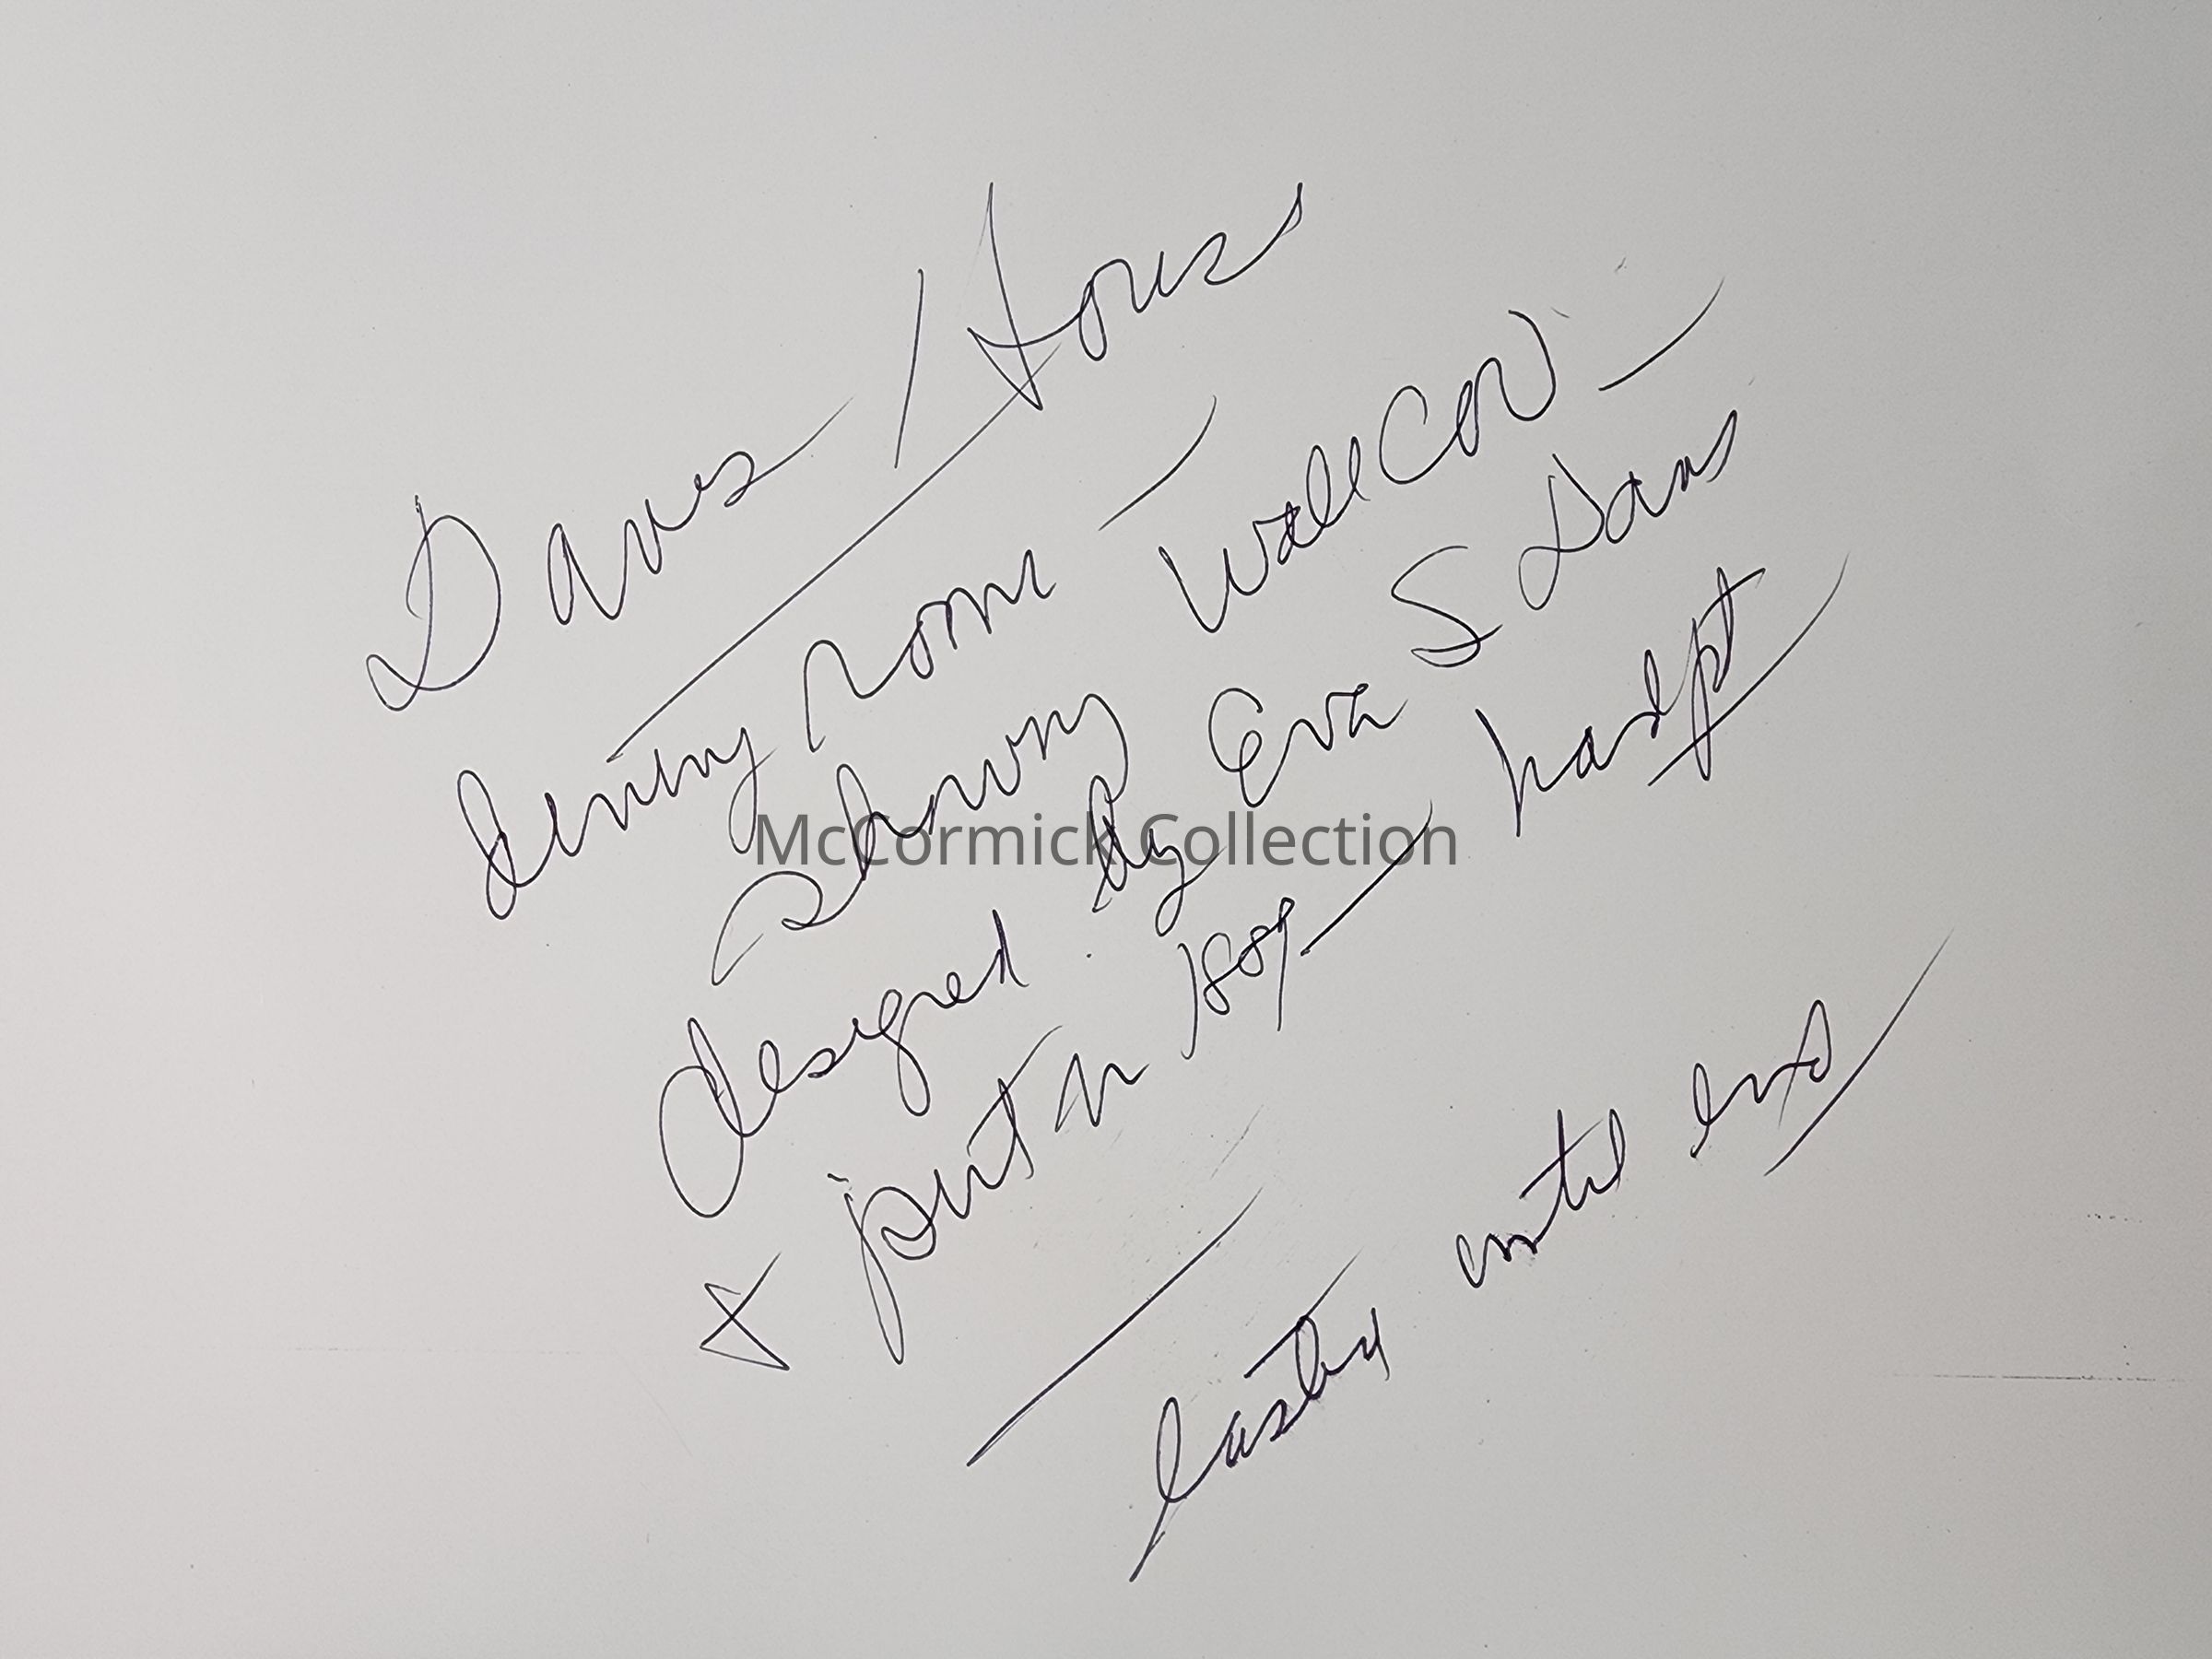 Davis House
dining room - Wallcov. -
showing
designed by Eva S Davis
& put in 1889 - hardpt
lasted until end
McCormick Collection